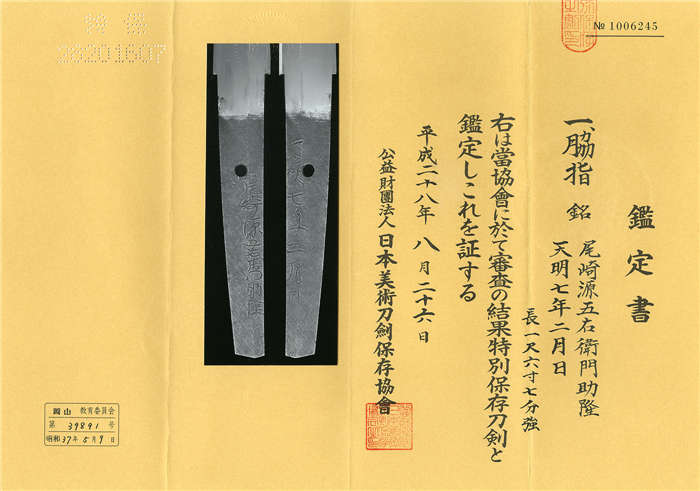 № 1006245
鑑定書
一、脇指 銘 尾崎源五右衛門助隆
天明七年二月日
長一尺六寸七分強
右は當協會に於て審査の結果特別保存刀剣と
鑑定しこれを証する
平成二十八年八月二十六日
公益財團法人 日本美術刀劍保存協會
岡山 教育委員会
第 39891 号
昭和 37年 5月 9日